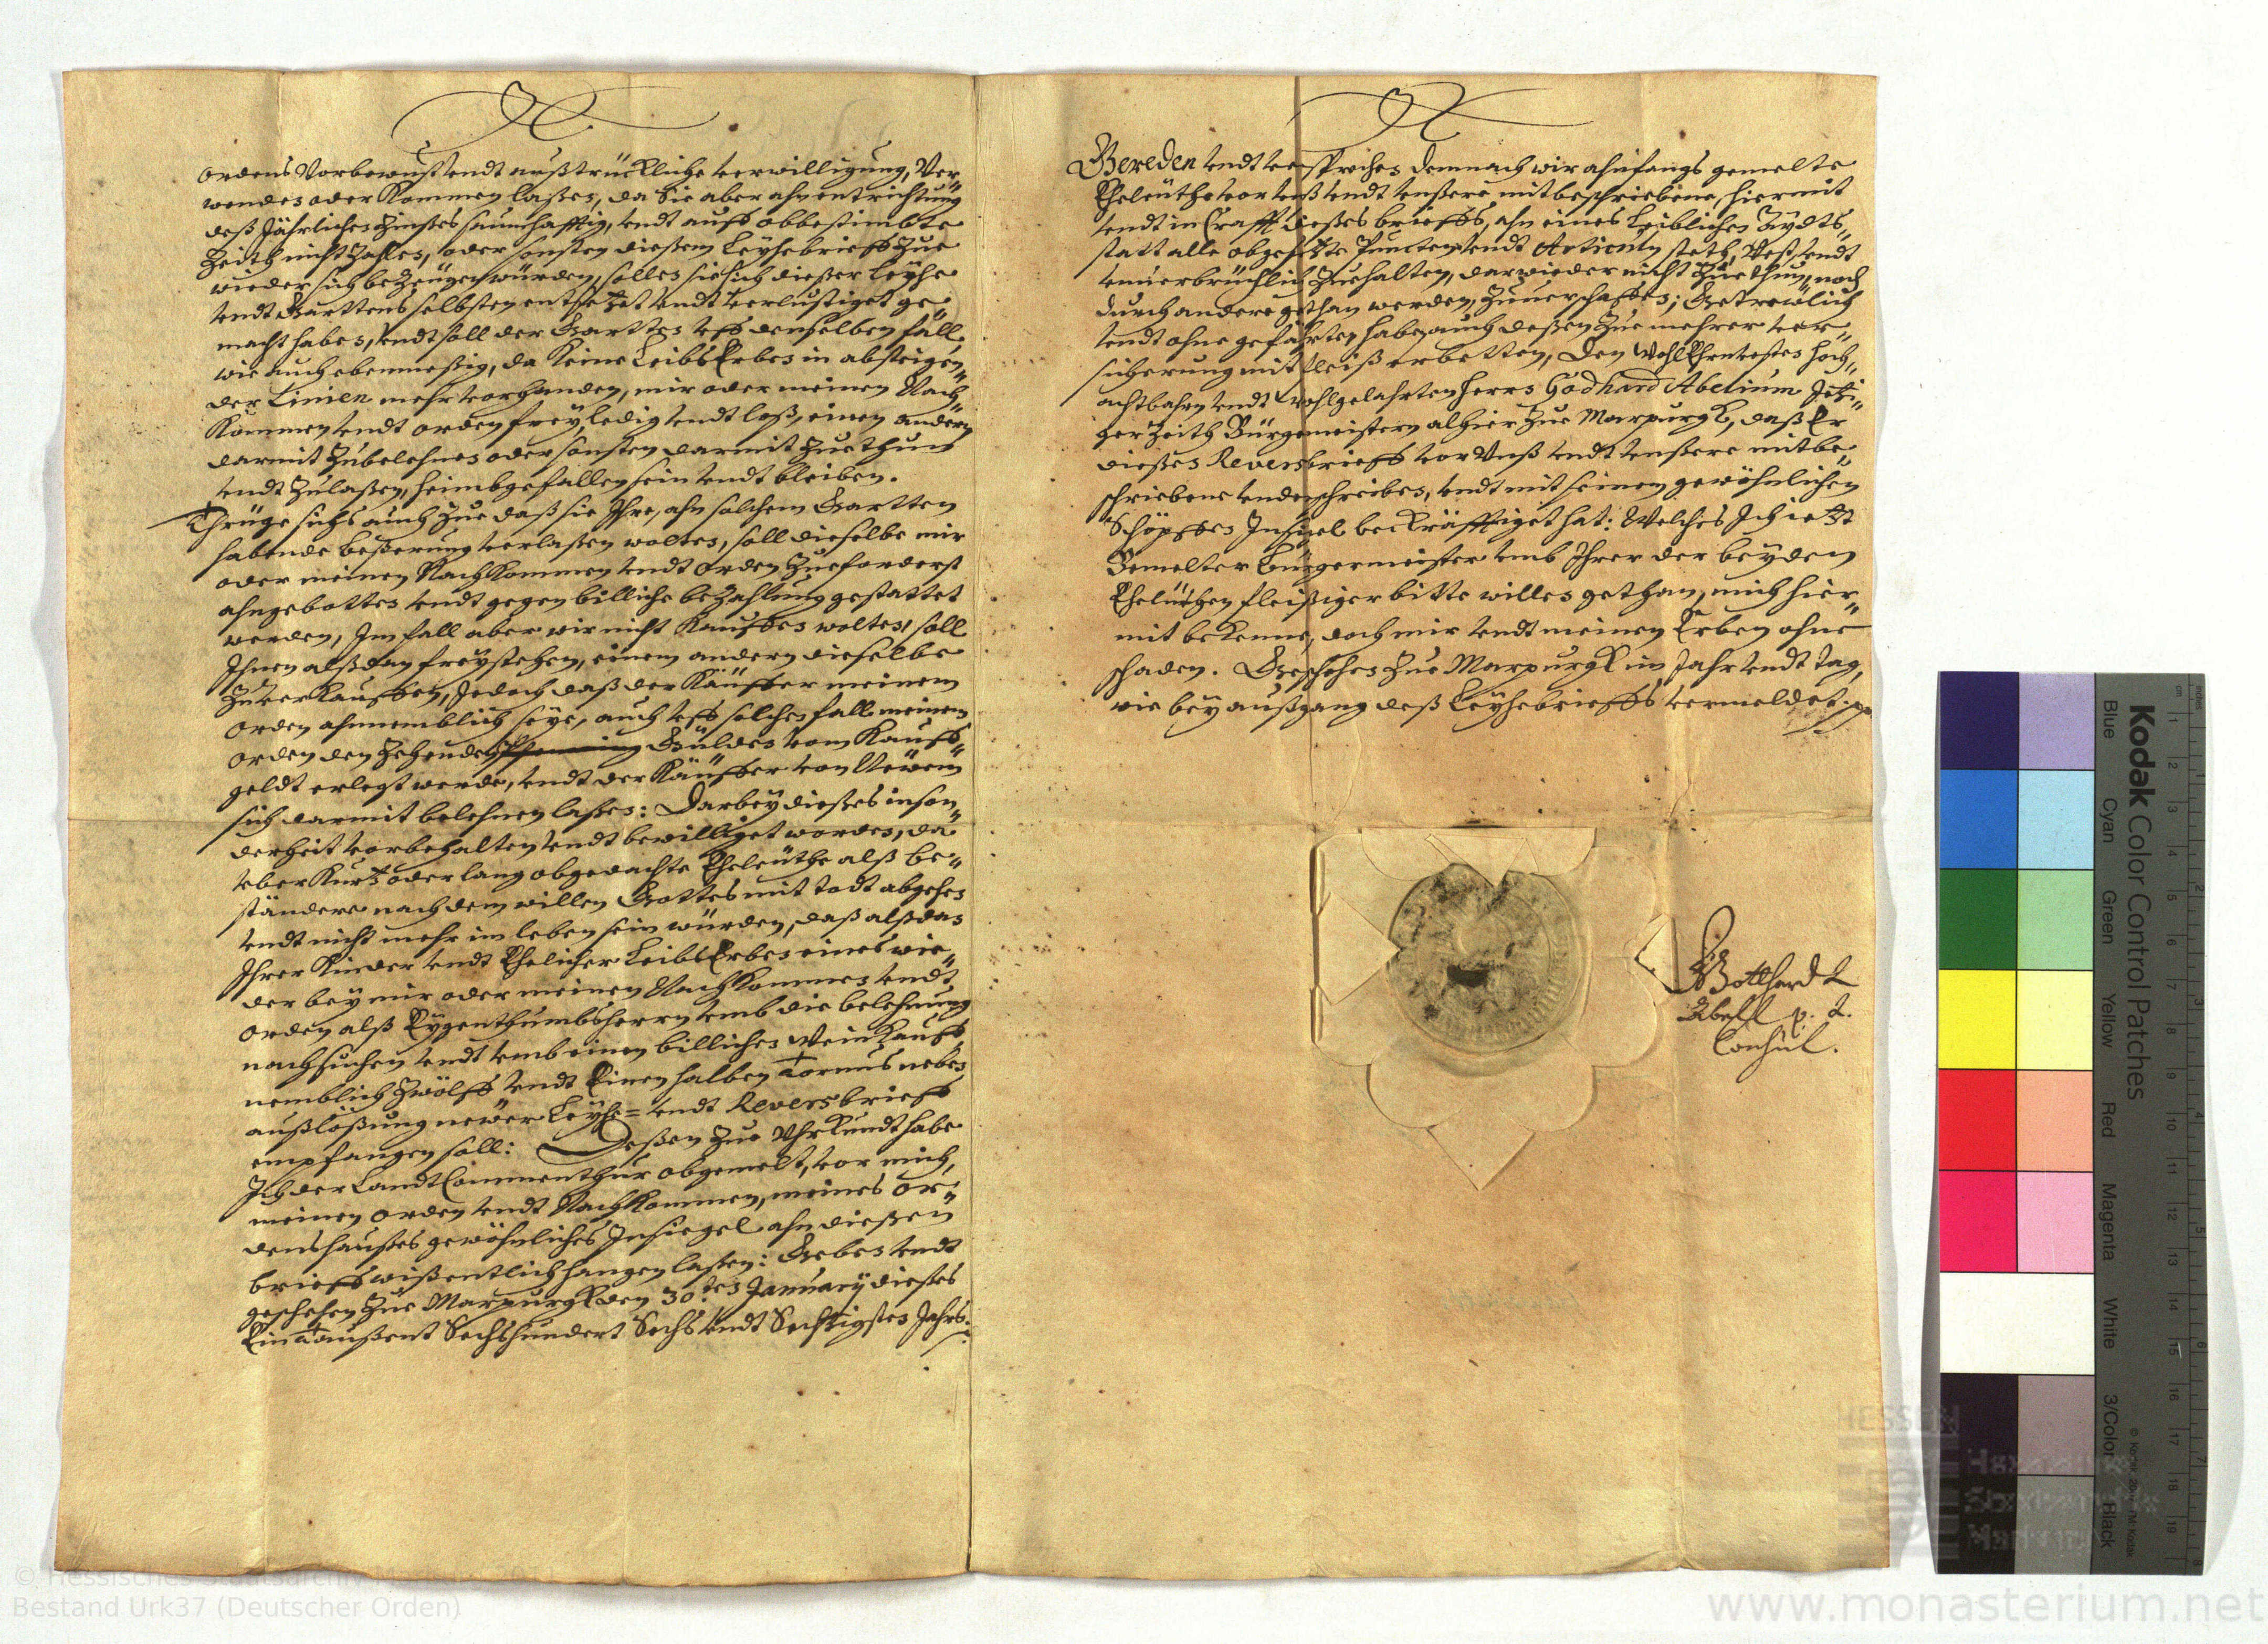 ordens Vorbewust vndt außtrückliche verwilligung, Ver„
wenden oder Kommen laßen, da Sie aber ahn entrichtung
deß Jährlichen Zinßes saumhafftig, vndt auff obbestimbte
Zeith nicht Zahlen, oder sonsten dießem Leyhebrieff Zue
wieder sich beZeugen würden, sollen sie sich dießer Leyhe
vndt Gartens selbsten entsetzet vndt verlustiget ge„
macht haben, vndt soll der Gartten vff denselben fall,
wie auch ebenmeßig, da Keine LeibsErben in absteigen„
der Linien mehr vorhanden, mir oder meinen Nach„
Kommen vndt orden frey, ledig vndt loß, einen andern
darmit Zubelehnen oder sonsten darmit Zue thun
vndt Zulaßen, heimbgefallen sein vndt bleiben.
Thrüge sichs auch Zue daß sie Ihre, ahn solchem Gartten
habende beßerung verlaßen wolten, soll dieselbe mir
oder meinen NachKommen vndt orden Zueforderst
ahngebotten vndt gegen billiche beZahlung gestattet
werden, Im fall aber wir nicht Kauffen wolten, soll
Ihnen alßdan freystehen, einem andern dieselbe
Zu verKauffen, Jedoch daß der Käuffer meinem
orden ahnnemblich seye, auch vff solchen fall meinem
orden den Zehenden Pfenning Gülden vom Kauff„
geldt erlegt werde, vndt der Käuffer von Newem
sich darmit belehnen laßen: Darbey dießes inson„
derheit vorbehalten vndt bewilliget worden, da
vber Kurtz oder lang obgedachte Eheleuthe alß be„
ständere nach dem willen Gottes mit todt abgehen
vndt nicht mehr im leben sein würden, daß alßdan
Ihrer Kinder vndt Ehelicher LeibsErben eines wie„
der bey mir oder meinen NachKommen vndt
orden alß Eygenthumbsherrn vmb die belehnung
nachsuchen vndt vmb einen billichen WeinKauff,
nemblich Zwölff vndt Einen halben Tornus neben
außlößung newer Leyhe= vndt Reversbrieff
empfangen soll: Deßen Zue VhrKundt habe
Ich der LandtCommenthur obgemelt, vor mich,
meinen orden vndt NachKommen, meines Or„
denshaußes gewöhnliches Insiegel ahn dießen
brieff wißentlich hangen laßen: Geben vndt
geschehen Zue MarpurgK den 30.ten January dießes
Ein Taußent Sechshundert Sechs vndt Sechtzigsten Jahrs.
Gereden vndt versprechen demnach wir ahnfangs gemelte
Eheleuthe vor vnß vndt vnßere mitbeschriebene, hiermit
vndt in Crafft dießes brieffs, ahn eines Leiblichen Aydts„
statt alle obgesetzte Puncten vndt Articuln steth, Vest, vndt
vnuerbrüchlich Zuehalten, darwieder nicht Zue thun, noch
durch andere gethan werden, Zuuerschaffen; Getrewlich
vndt ohne gefährten, haben auch deßen Zue mehrer ver„
sicherung mit fleiß erbetten, Den WohlEhrnvesten hoch„
achtbahrn vndt wohlgelahrten Herrn Godhard Abelium Jetzi„
ger Zeith Bürgemeistern alhier Zue MarpurgK, daß Er
dießen Reversbrieff vor Vnß vndt vnßere mitbe„
schriebene vnderschrieben, vndt mit seinem gewöhnlichen
Schöpffen Insigel becKräfftiget hat: Welches Ich ietzt
Bemelter Bürgermeister vmb Ihrer der beyden
Eheleuthen fleißiger bitte willen gethan, mich hier„
mit beKenne, doch mir vndt meinen Erben ohne
schaden. Geschehen Zue MarpurgK im Jahr vndt tag,
wie bey außgang deß Leyhebrieffs vermeldet.
Gotthardt
Abell p. t.
Consul.
Kodak Color Control Patches
Blue
Cyan
Green
Yellow
Red
Magenta
White
3/Color
Black
© Hessisches Staatsarchiv Marburg
Bestand Urk37 (Deutscher Orden)
www.monasterium.net